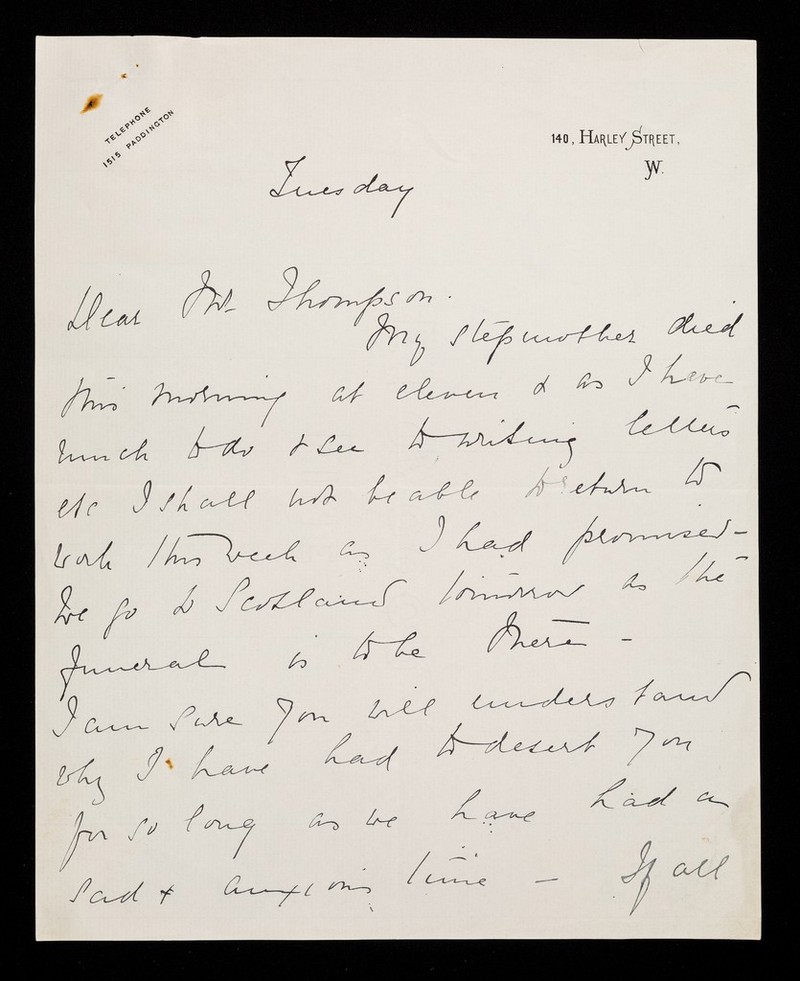 TELEPHONE
1515 PADDINGTON
140, HARLEY STREET,
W.
Tuesday
Dear Mr. Thompson.
My stepmother died
this morning at eleven & as I have
much to do & see to writing letters
etc I shall not be able to return to
work this week as I had promised -
We go to Scotland tomorrow as the
funeral is to be there -
I am sure you will understand
why I have had to desert you
for so long as we have had a
sad & anxious time - If all